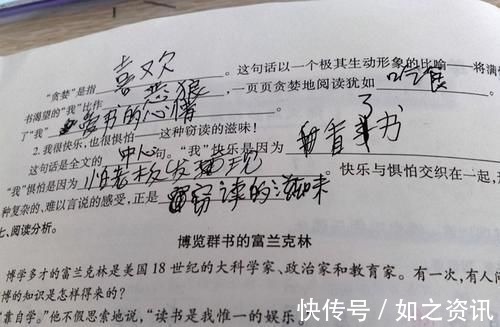 “贪婪”是指 喜欢 。这句话以一个极其生动形象的比喻——将满
书渴望的“我”比作 恶狼 ,一页页贪婪地阅读犹如 吃食
了“我” 爱书的心情 。
2.我很快乐,也很惧怕——这种窃读的滋味!
这句话是全文的 中心 句。“我”快乐是因为 看了书
“我”惧怕是因为 怕老板发现 。快乐与惧怕交织在一起,
种复杂的、难以言说的感受,正是 窃读的滋味
七、阅读分析。
博览群书的富兰克林
博学多才的富兰克林是美国18世纪的大科学家、政治家和教育家。有一次,有人问
博的知识是怎样得来的?
“靠自学。”他不假思索地说,“读书是我惟一的娱乐。
快传号/如之资讯